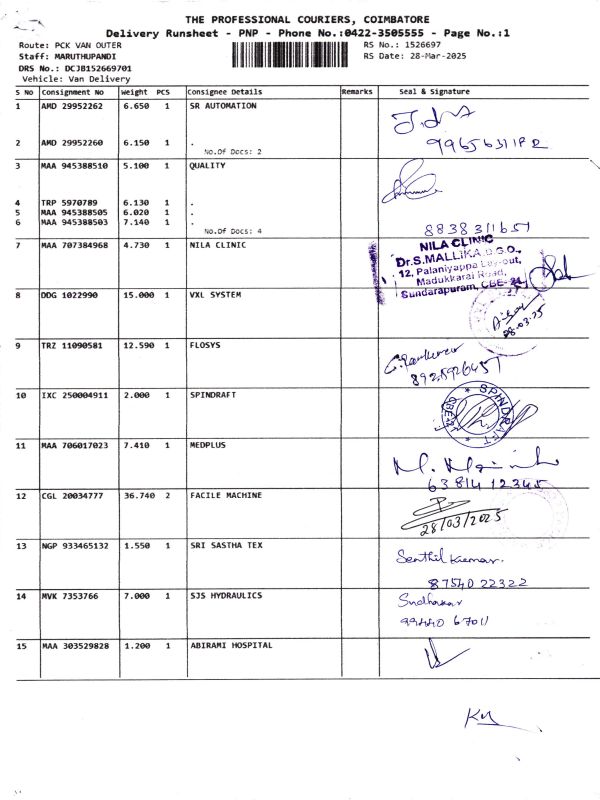 THE PROFESSIONAL COURIERS, COIMBATORE
Delivery Runsheet - PNP - Phone No.:0422-3505555 - Page No.:1
Route: PCK VAN OUTER RS No.: 1526697
Staff: MARUTHUPANDI RS Date: 28-Mar-2025
DRS No.: DCJB152669701
Vehicle: Van Delivery
S No Consignment No Weight PCS Consignee Details Remarks Seal & Signature
1 AMD 29952262 6.650 1 SR AUTOMATION
2 AMD 29952260 6.150 1 .
No.Of Docs: 2
3 MAA 945388510 5.100 1 QUALITY
4 TRP 5970789 6.130 1 .
5 MAA 945388505 6.020 1 .
6 MAA 945388503 7.140 1 .
No.Of Docs: 4
8838311651
7 MAA 707384968 4.730 1 NILA CLINIC
NILA CLINIC
Dr.S.MALLIKA,D.G.O.,
12, Palaniyappa Lay-out,
Madukkarai Road,
Sundarapuram, CBE-24
8 DDG 1022990 15.000 1 VXL SYSTEM
28.03.25
9 TRZ 11090581 12.590 1 FLOSYS
8925926457
10 IXC 250004911 2.000 1 SPINDRAFT
SPINDRAFT
11 MAA 706017023 7.410 1 MEDPLUS
6381412345
12 CGL 20034777 36.740 2 FACILE MACHINE
28/03/2025
13 NGP 933465132 1.550 1 SRI SASTHA TEX
Senthil Kumar.
87540 22322
14 MVK 7353766 7.000 1 SJS HYDRAULICS
Sudhakar
99440 67011
15 MAA 303529828 1.200 1 ABIRAMI HOSPITAL